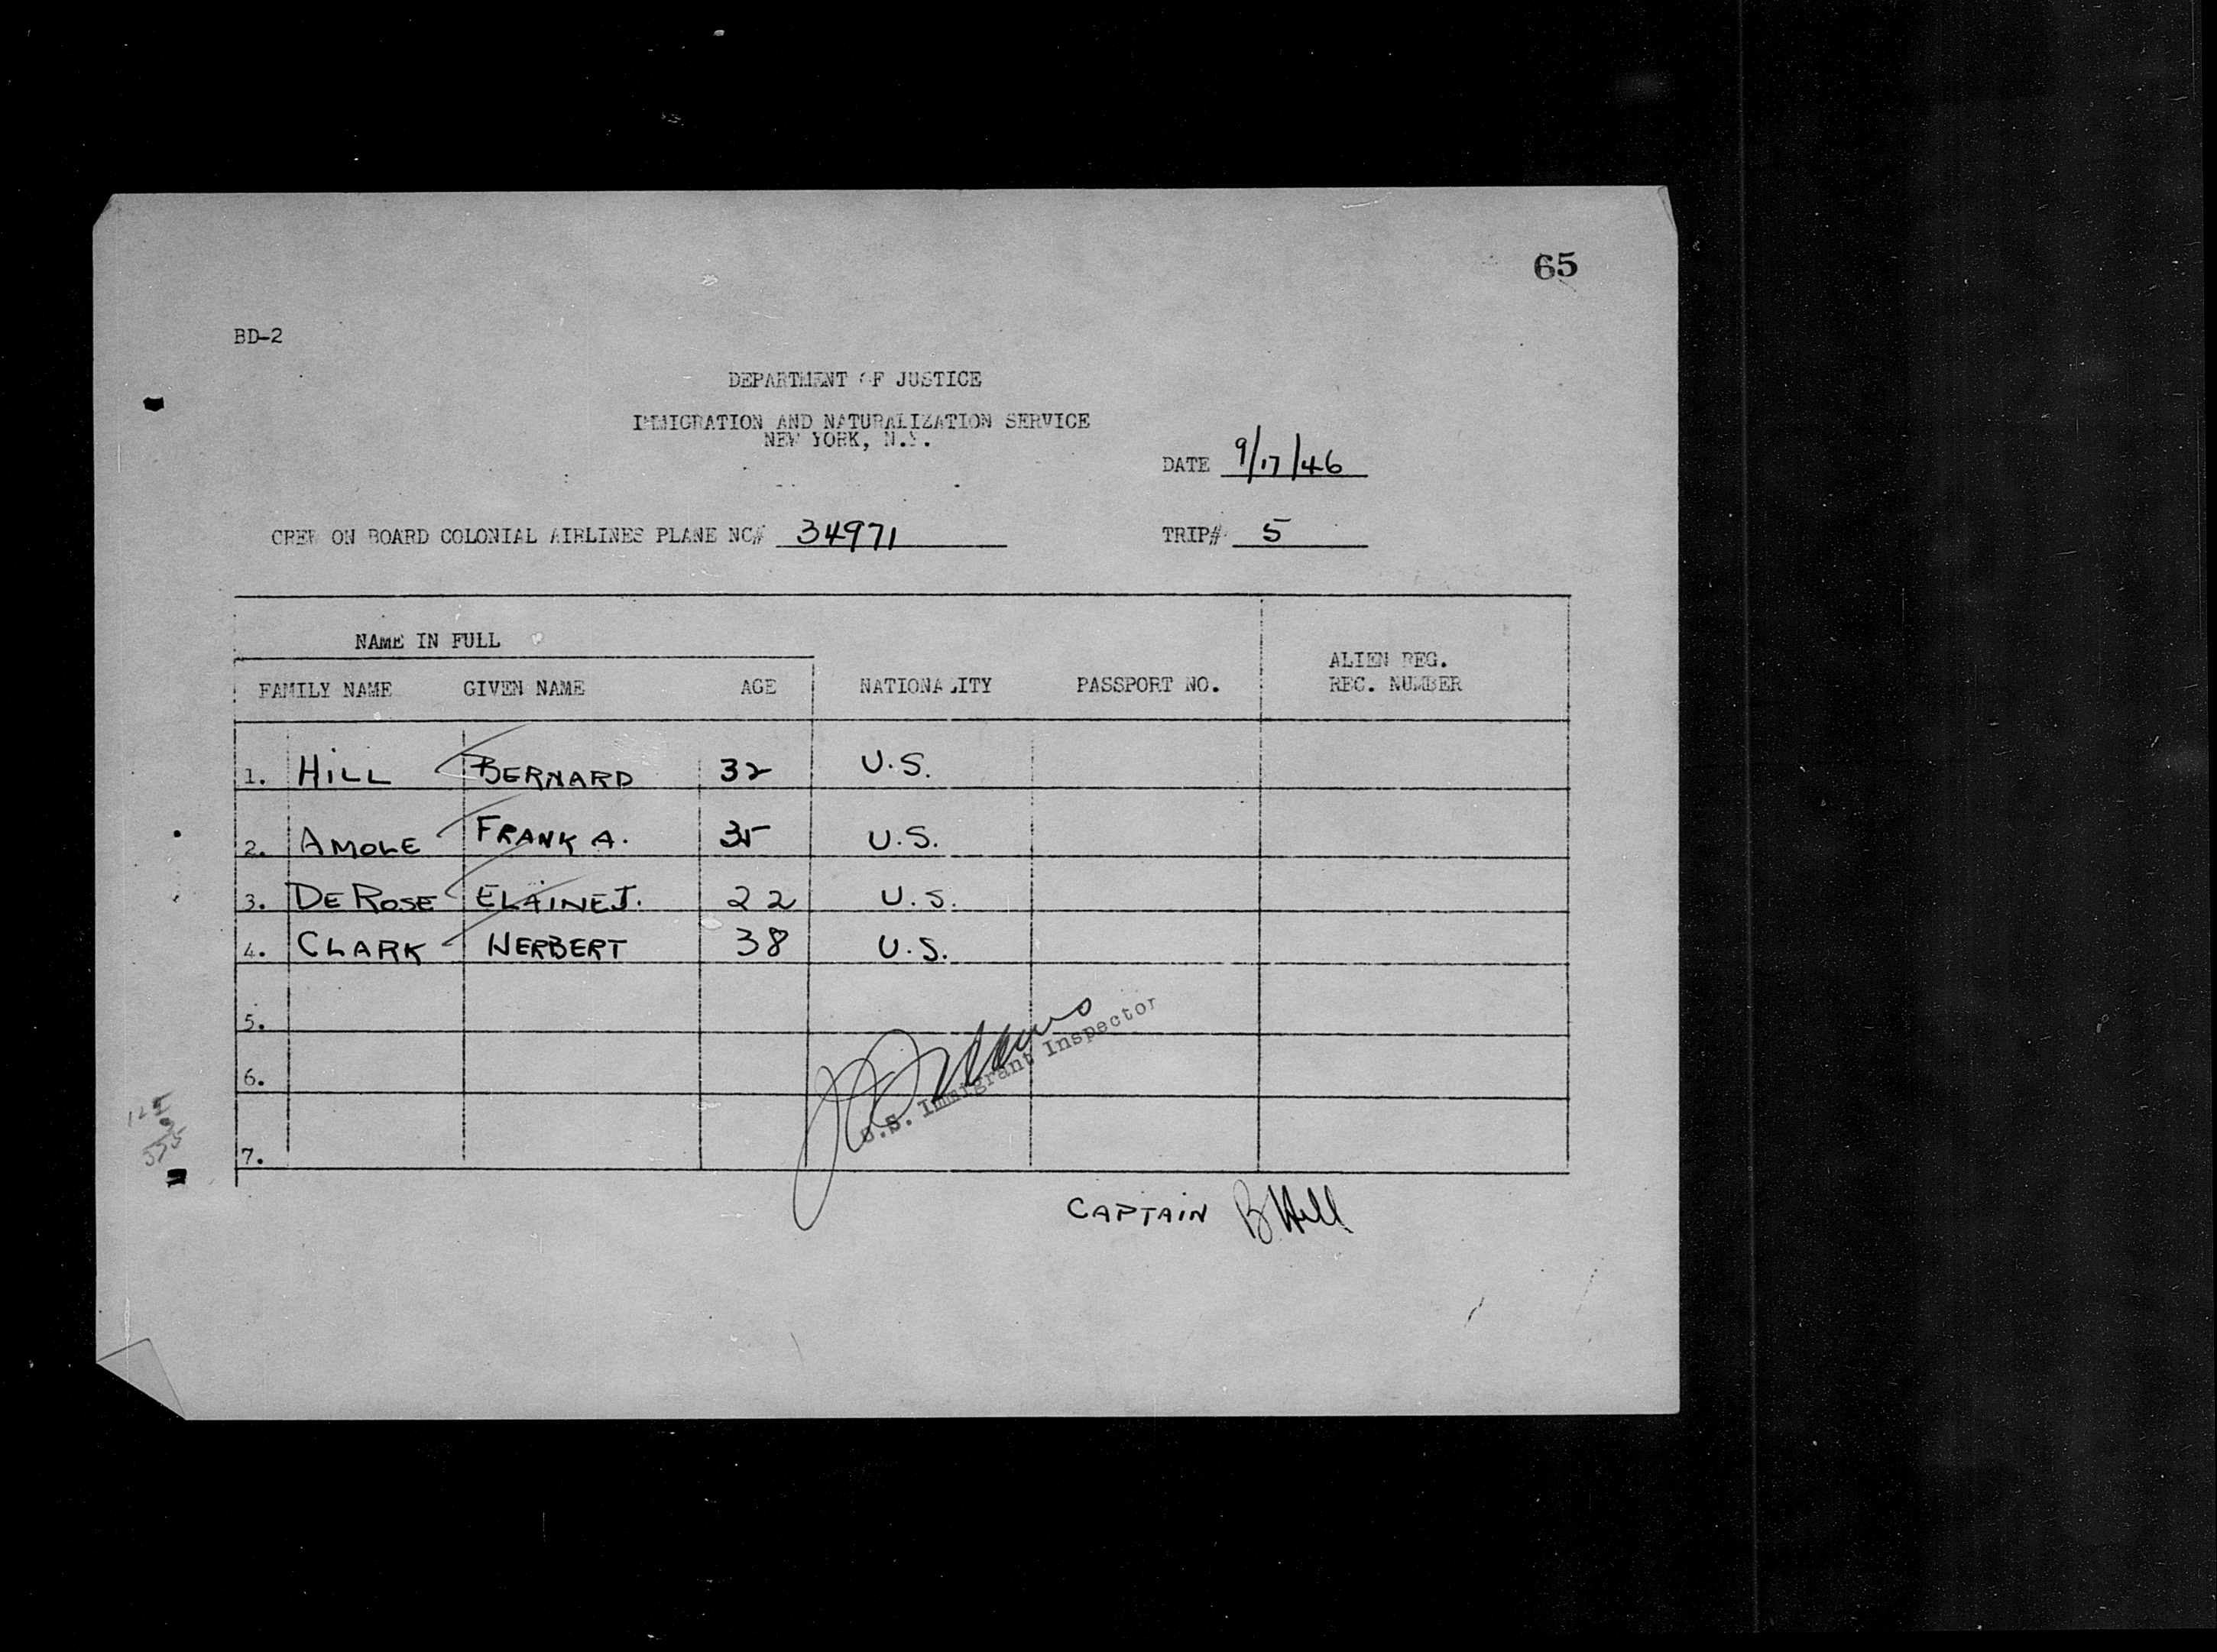 65
BD-2
DEPARTMENT OF JUSTICE
IMMIGRATION AND NATURALIZATION SERVICE
NEW YORK, N.Y.
DATE 9/17/46
CREW ON BOARD COLONIAL AIRLINES PLANE NC# 34971 TRIP# 5
NAME IN FULL
ALIEN REG.
FAMILY NAME GIVEN NAME AGE NATIONALITY PASSPORT NO. REC. NUMBER
1. HILL BERNARD 32 U.S.
2. AMOLE FRANK A. 35 U.S.
3. DEROSE ELAINE J. 22 U.S.
4. CLARK HERBERT 38 U.S.
5.
6.
7.
U.S. Immigrant Inspector
CAPTAIN B Hill